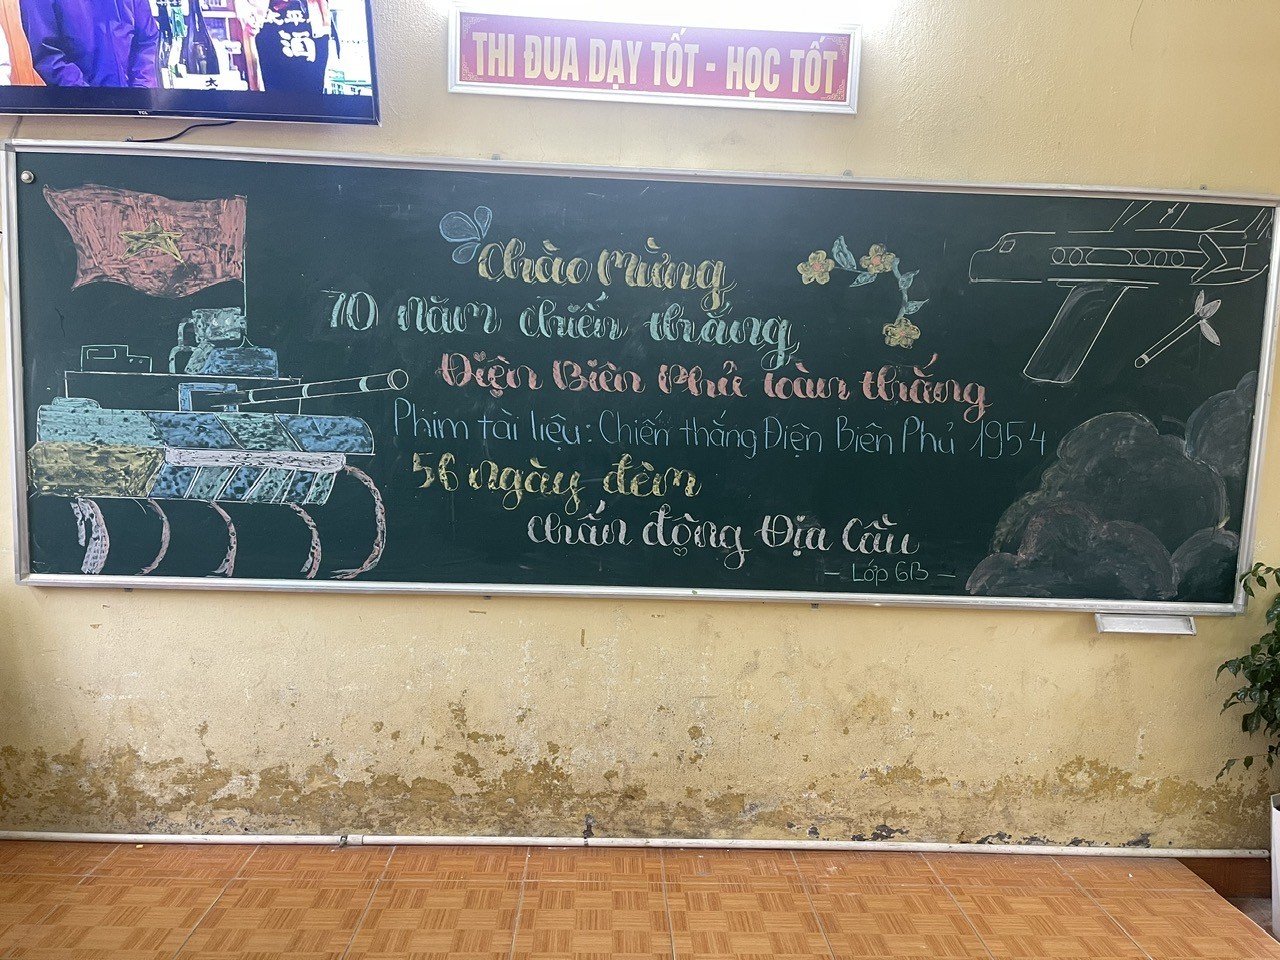 太平
酒
TCL
THI ĐUA DẠY TỐT - HỌC TỐT
Chào Mừng
70 năm chiến thắng
Điện Biên Phủ toàn thắng
Phim tài liệu: Chiến thắng Điện Biên Phủ 1954
56 ngày đêm
chấn động Địa Cầu
- Lớp 6B -